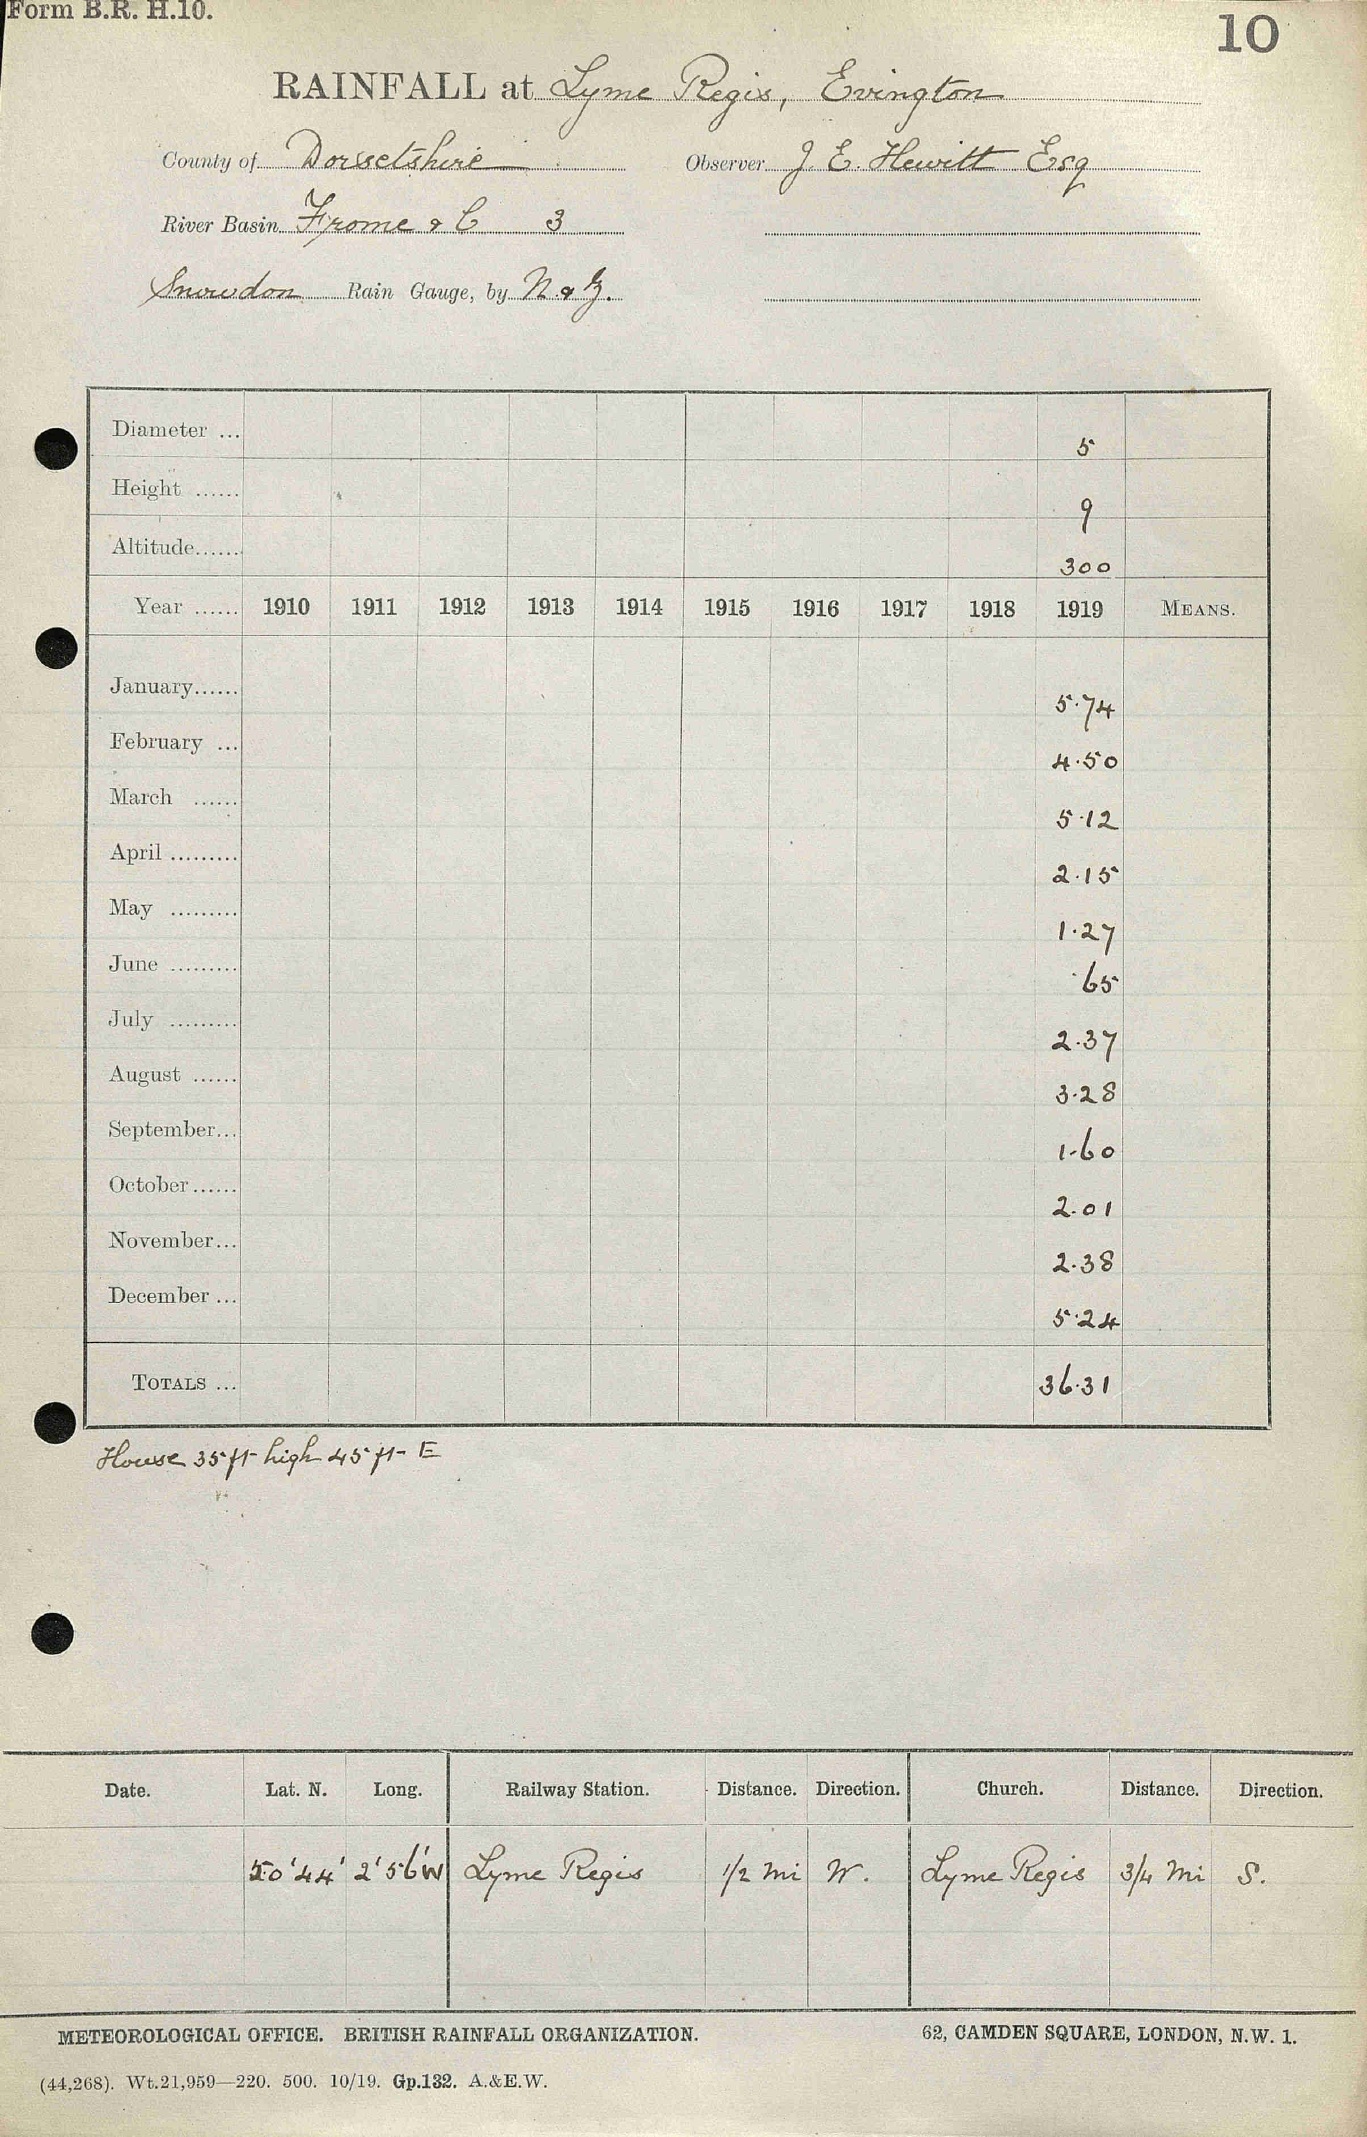 Form B.R. H.10.
10
RAINFALL at Lyme Regis, Evington
County of Dorsetshire Observer J. E. Hewitt Esq
River Basin Frome & C 3
Snowdon Rain Gauge, by N & Z.
Diameter ... 5
Height ...... 9
Altitude...... 300
Year ...... 1910 1911 1912 1913 1914 1915 1916 1917 1918 1919 MEANS.
January...... 5.74
February ... 4.50
March ...... 5.12
April ......... 2.15
May ......... 1.27
June ......... .65
July ......... 2.37
August ...... 3.28
September... 1.60
October...... 2.01
November... 2.38
December ... 5.24
TOTALS ... 36.31
House 35 ft high 45 ft E
Date. Lat. N. Long. Railway Station. Distance. Direction. Church. Distance. Direction.
50'44' 2'56'W Lyme Regis 1/2 mi W. Lyme Regis 3/4 mi S.
METEOROLOGICAL OFFICE. BRITISH RAINFALL ORGANIZATION. 62, CAMDEN SQUARE, LONDON, N.W. 1.
(44,268). Wt.21,959—220. 500. 10/19. Gp.132. A.&E.W.